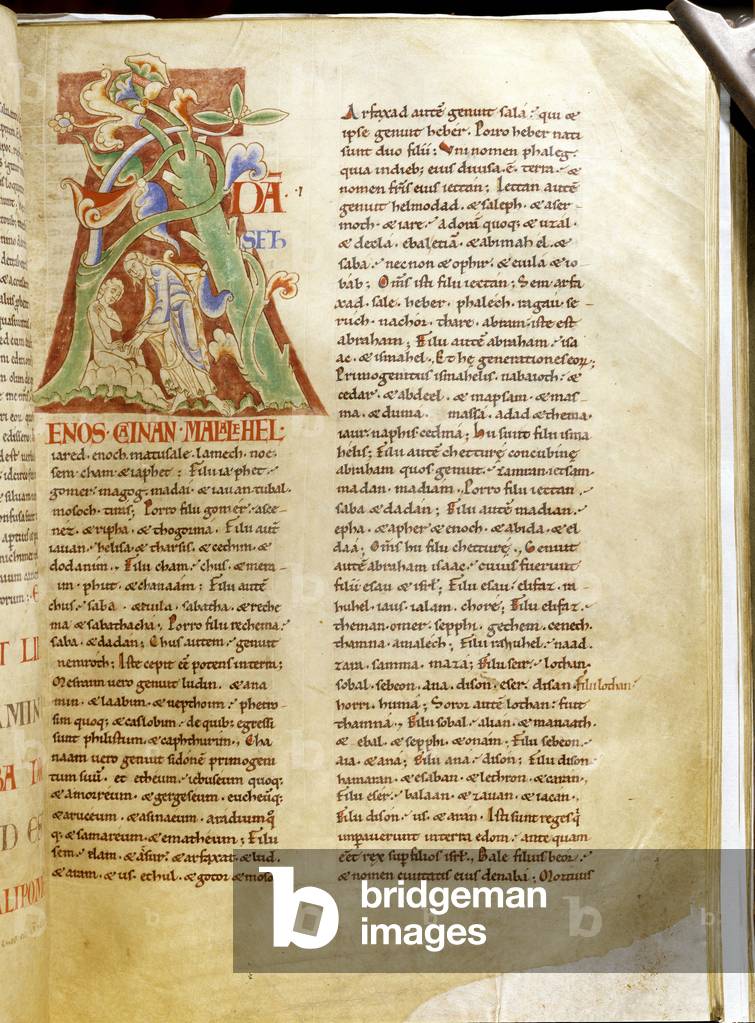 A
DĀ
SETh
ENOS · CAINAN · MALALEHEL ·
iared . enoch . matusale . lamech . noe .
sem . cham . & iaphet : Filii iaphet .
gomer . magog . madai . & iauan . tubal .
mosoch . tiras ; Porro filii gomer . asce
nez . & ripha . & thogorma . Filii aut̄
iauan . helisa . & tharsis . & cethim . &
dodanim . Filii cham . chus . & mesra
im . phut . & chanaam : Filii autē
chus . saba . & euila . sabatha . & reche
ma & sabathacha . Porro filii rechema .
saba . & dadan ; Chus autem . genuit
nemroth ; Iste cepit eē potens in terra ;
Mesraim uero genuit ludim . & ana
mim . & laabim . & nepthoim . phetro
sim quoq; & caslobim . de quib; egressi
sunt philistiim . & capthurim . Cha
naam uero genuit sidonē primogeni
tum suū . et etheum . iebuseum quoq;
& amorreum . & gergeseum . eucheūq;
& aruceum . & asinaeum . aradiumq̄
q; & samareum . & ematheum ; Filii
sem . elam . & assur . & arfaxat . & lud .
& aram . & us . et hul . & gotor . & moso
Arfaxad autē genuit sala . qui &
ipse genuit heber . Porro heber nati
sunt duo filii ; Vni nomen phaleg .
quia in dieb; eius diuisa . ē . terra . &
nomen fr̄is eius iectan ; Iectan autē
genuit helmodad . & saleph . & aser
moth . & iare . adorā quoq; & uzal .
& decla . ebal etiā . & abimahel . &
saba . nec non & ophir . & euila . & io
bab ; Om̄s isti filii iectan ; Sem . arfa
xad . sale . heber . phalech . ragau . se
ruch . nachor . thare . abram . iste est
abraham ; Filii autē abraham . isa
ac . & ismahel . Et hę generationes eoꝝ ;
Primogenitus ismahelis . nabaioth . &
cedar . & abdeel . & mapsam . & mas
ma . & duma . massa . adad & thema .
iaur . naphis . cedma ; hii sunt filii isma
helis ; Filii autē chetturę concubinę
abraham quos genuit . zamran . iecsam .
madan . madiam . Porro filii iectan .
saba . & dadan ; Filii autē madian .
epha . & apher & enoch . & abida . & el
daa ; Om̄s hii filii chetturę . Genuit
autē abraham isaac . cuius fuerunt
filii esau & isr̄l ; Filii esau . elifaz . ra
huhel . iaus . ialam . chore ; Filii elifaz .
theman . omer . sepphi . gethem . cenech .
thamna . amalech ; Filii rahuhel . naad .
zara . samma . maza ; Filii seir . lothan .
sobal . sebeon . ana . dison . eser . disan . Filii lothan .
horri . huma ; Soror autē lothan . fuit
thamna . Filii sobal . alian . & manaath .
& ebal . & sepphi . & onam ; Filii sebeon .
aia . & ana ; Filii ana . dison ; Filii dison .
hamaran . & esaban . & iethran . & caran .
Filii eser . balaan . & zauan . & iacan .
Filii dison . us . & aran . Isti sunt reges q̄
imperauerunt in terra edom . ante quam
eēt rex sup filios isr̄l . Bale filius beor .
& nomen ciuitatis eius denaba ; Mortuus
bridgeman
images